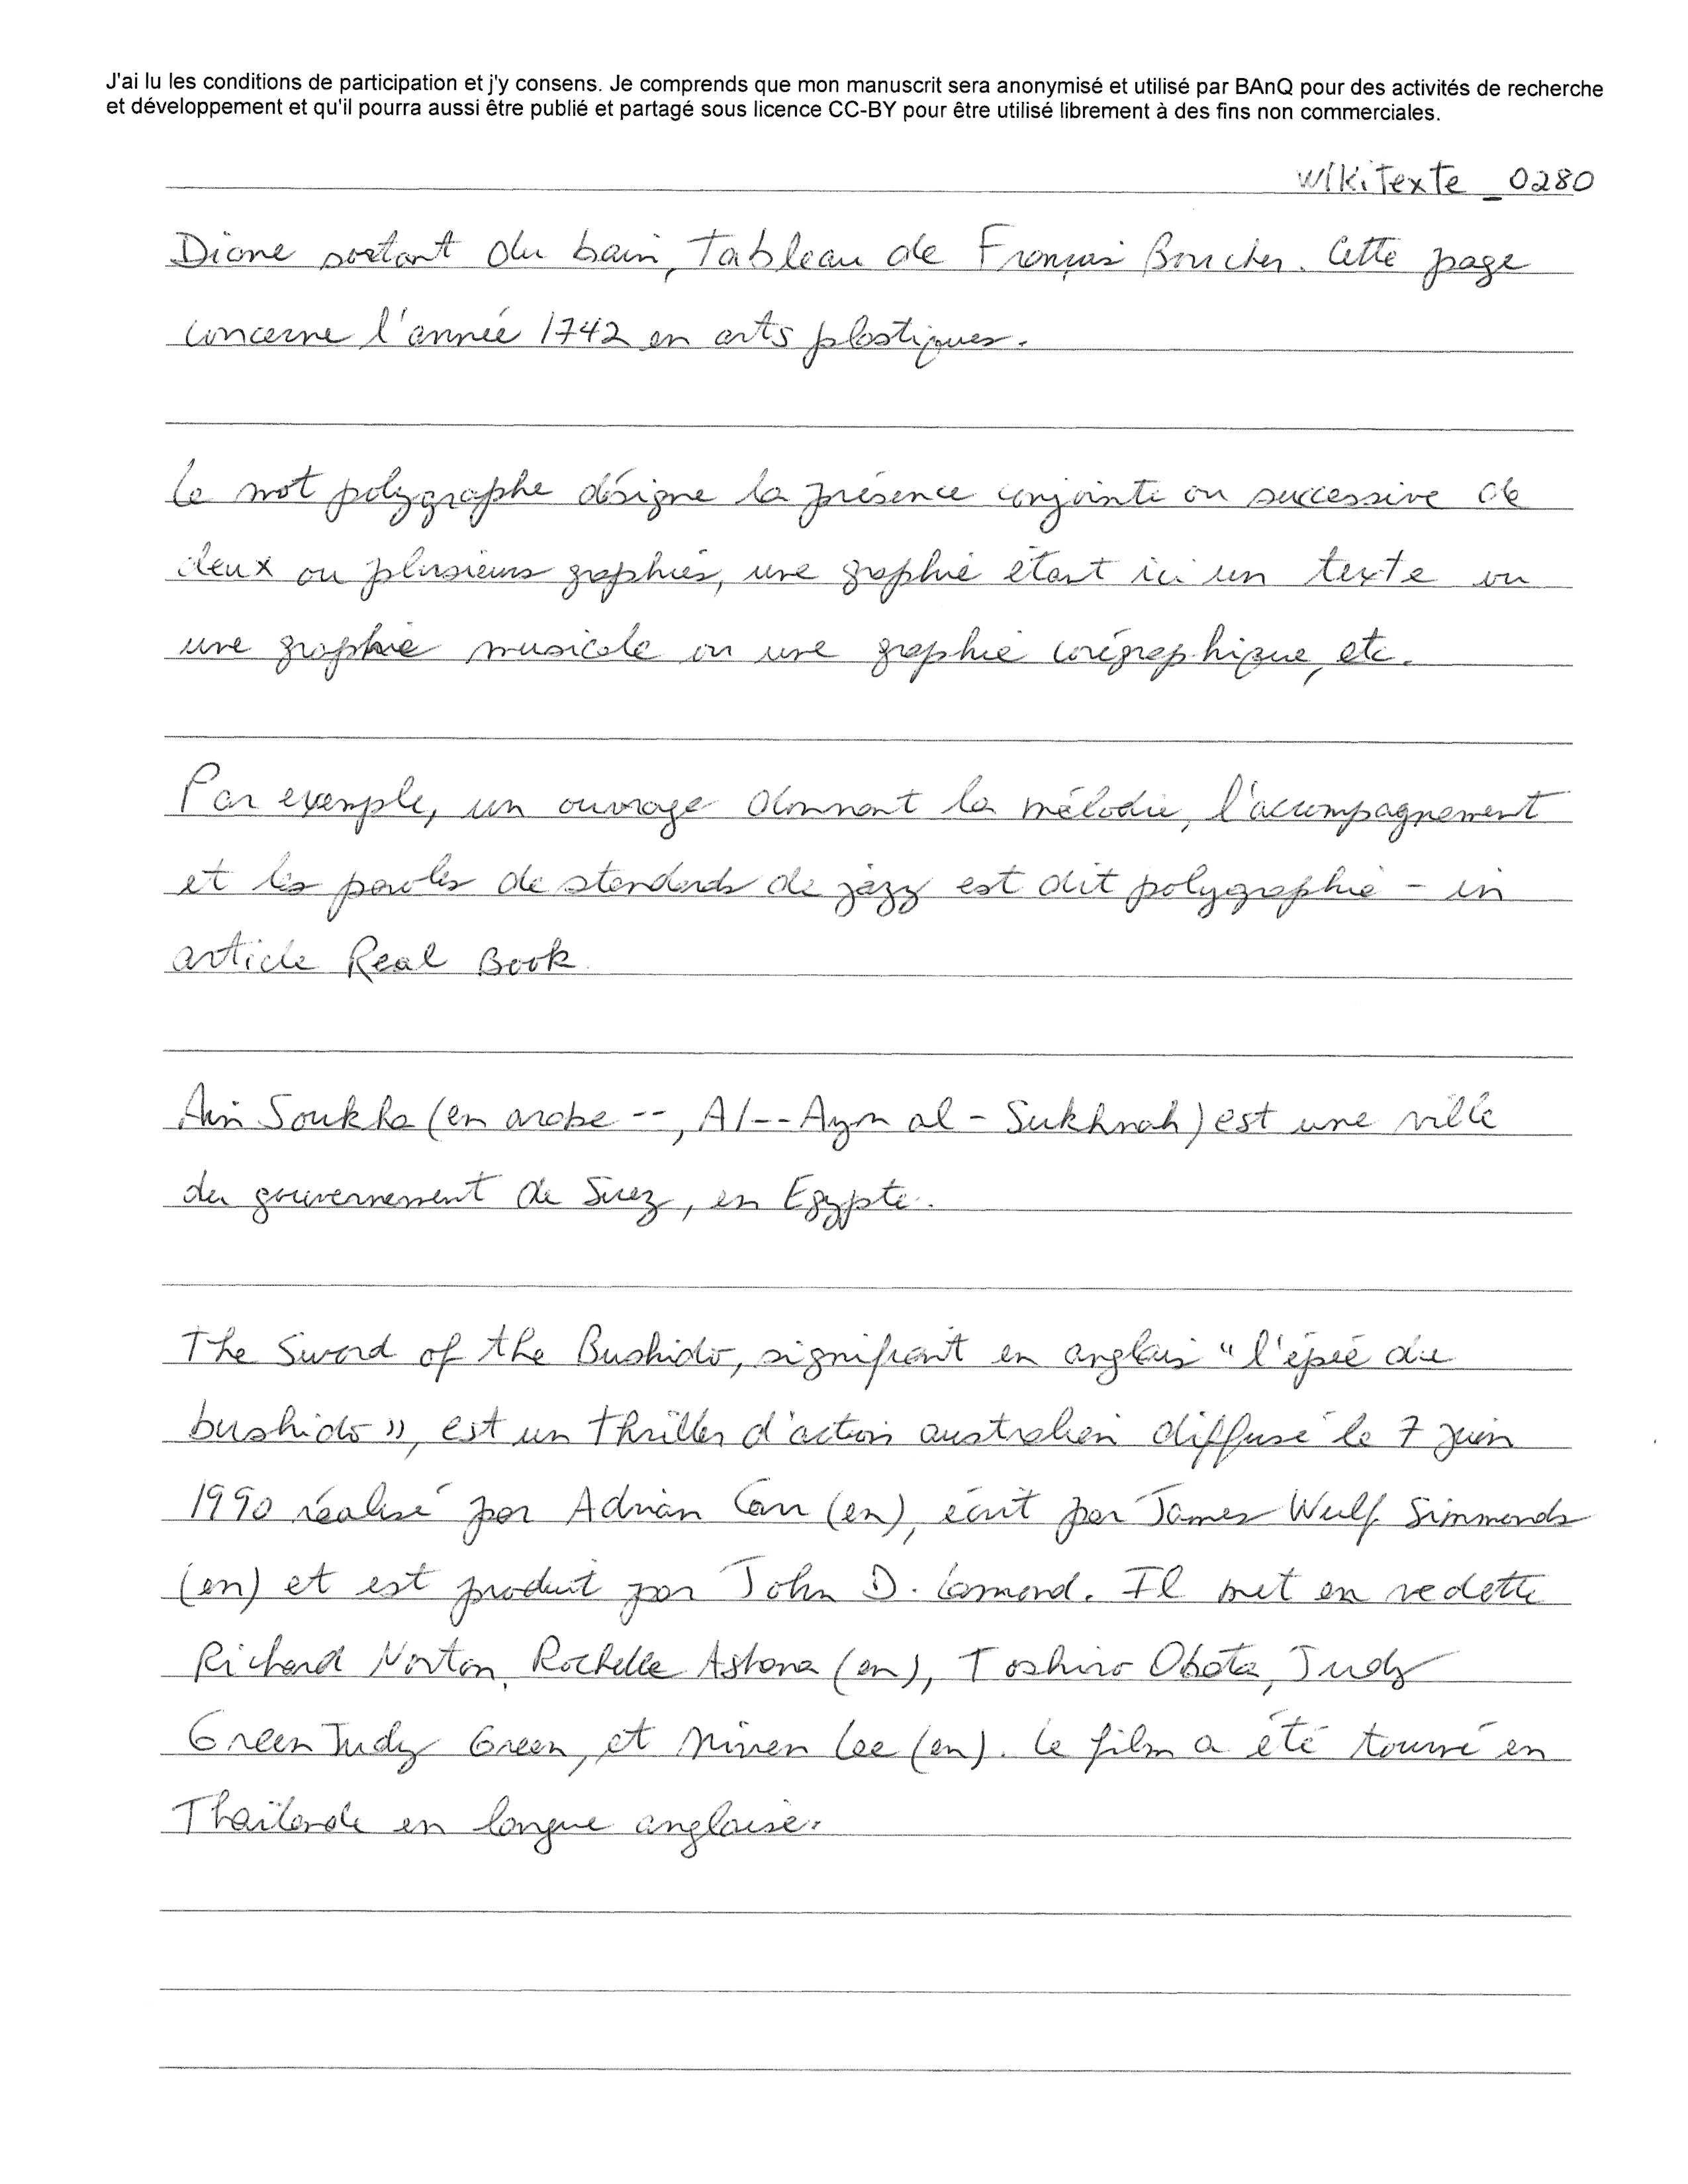 J'ai lu les conditions de participation et j'y consens. Je comprends que mon manuscrit sera anonymisé et utilisé par BAnQ pour des activités de recherche
et développement et qu'il pourra aussi être publié et partagé sous licence CC-BY pour être utilisé librement à des fins non commerciales.
Wikitexte_0280
Diane sortant du bain, tableau de François Boucher. Cette page
concerne l'année 1742 en arts plastiques.
Le mot polygraphe désigne la présence conjointe ou successive de
deux ou plusieurs graphies, une graphie étant ici un texte ou
une graphie musicale ou une graphie corégraphique, etc.
Par exemple, un ouvrage donnant la mélodie, l'accompagnement
et les paroles de standards de jazz est dit polygraphie - in
article Real Book.
Ain Soukha (en arabe --, Al--Ayn al-Sukhnah) est une ville
du gouvernement de Suez, en Egypte.
The Sword of the Bushido, signifiant en anglais "l'épée du
bushido», est un thriller d'action australien diffusé le 7 juin
1990 réalisé par Adrian Carr (en), écrit par James Wulf Simmonds
(en) et est produit par John D. Lamond. Il met en vedette
Richard Norton, Rochelle Ashana (en), Toshiro Obata, Judy
Green Judy Green, et Miren Lee (en). Le film a été tourné en
Thaïlande en langue anglaise.